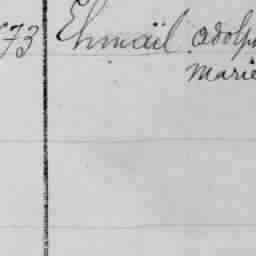 73 Ehmäil Adolph
Marie